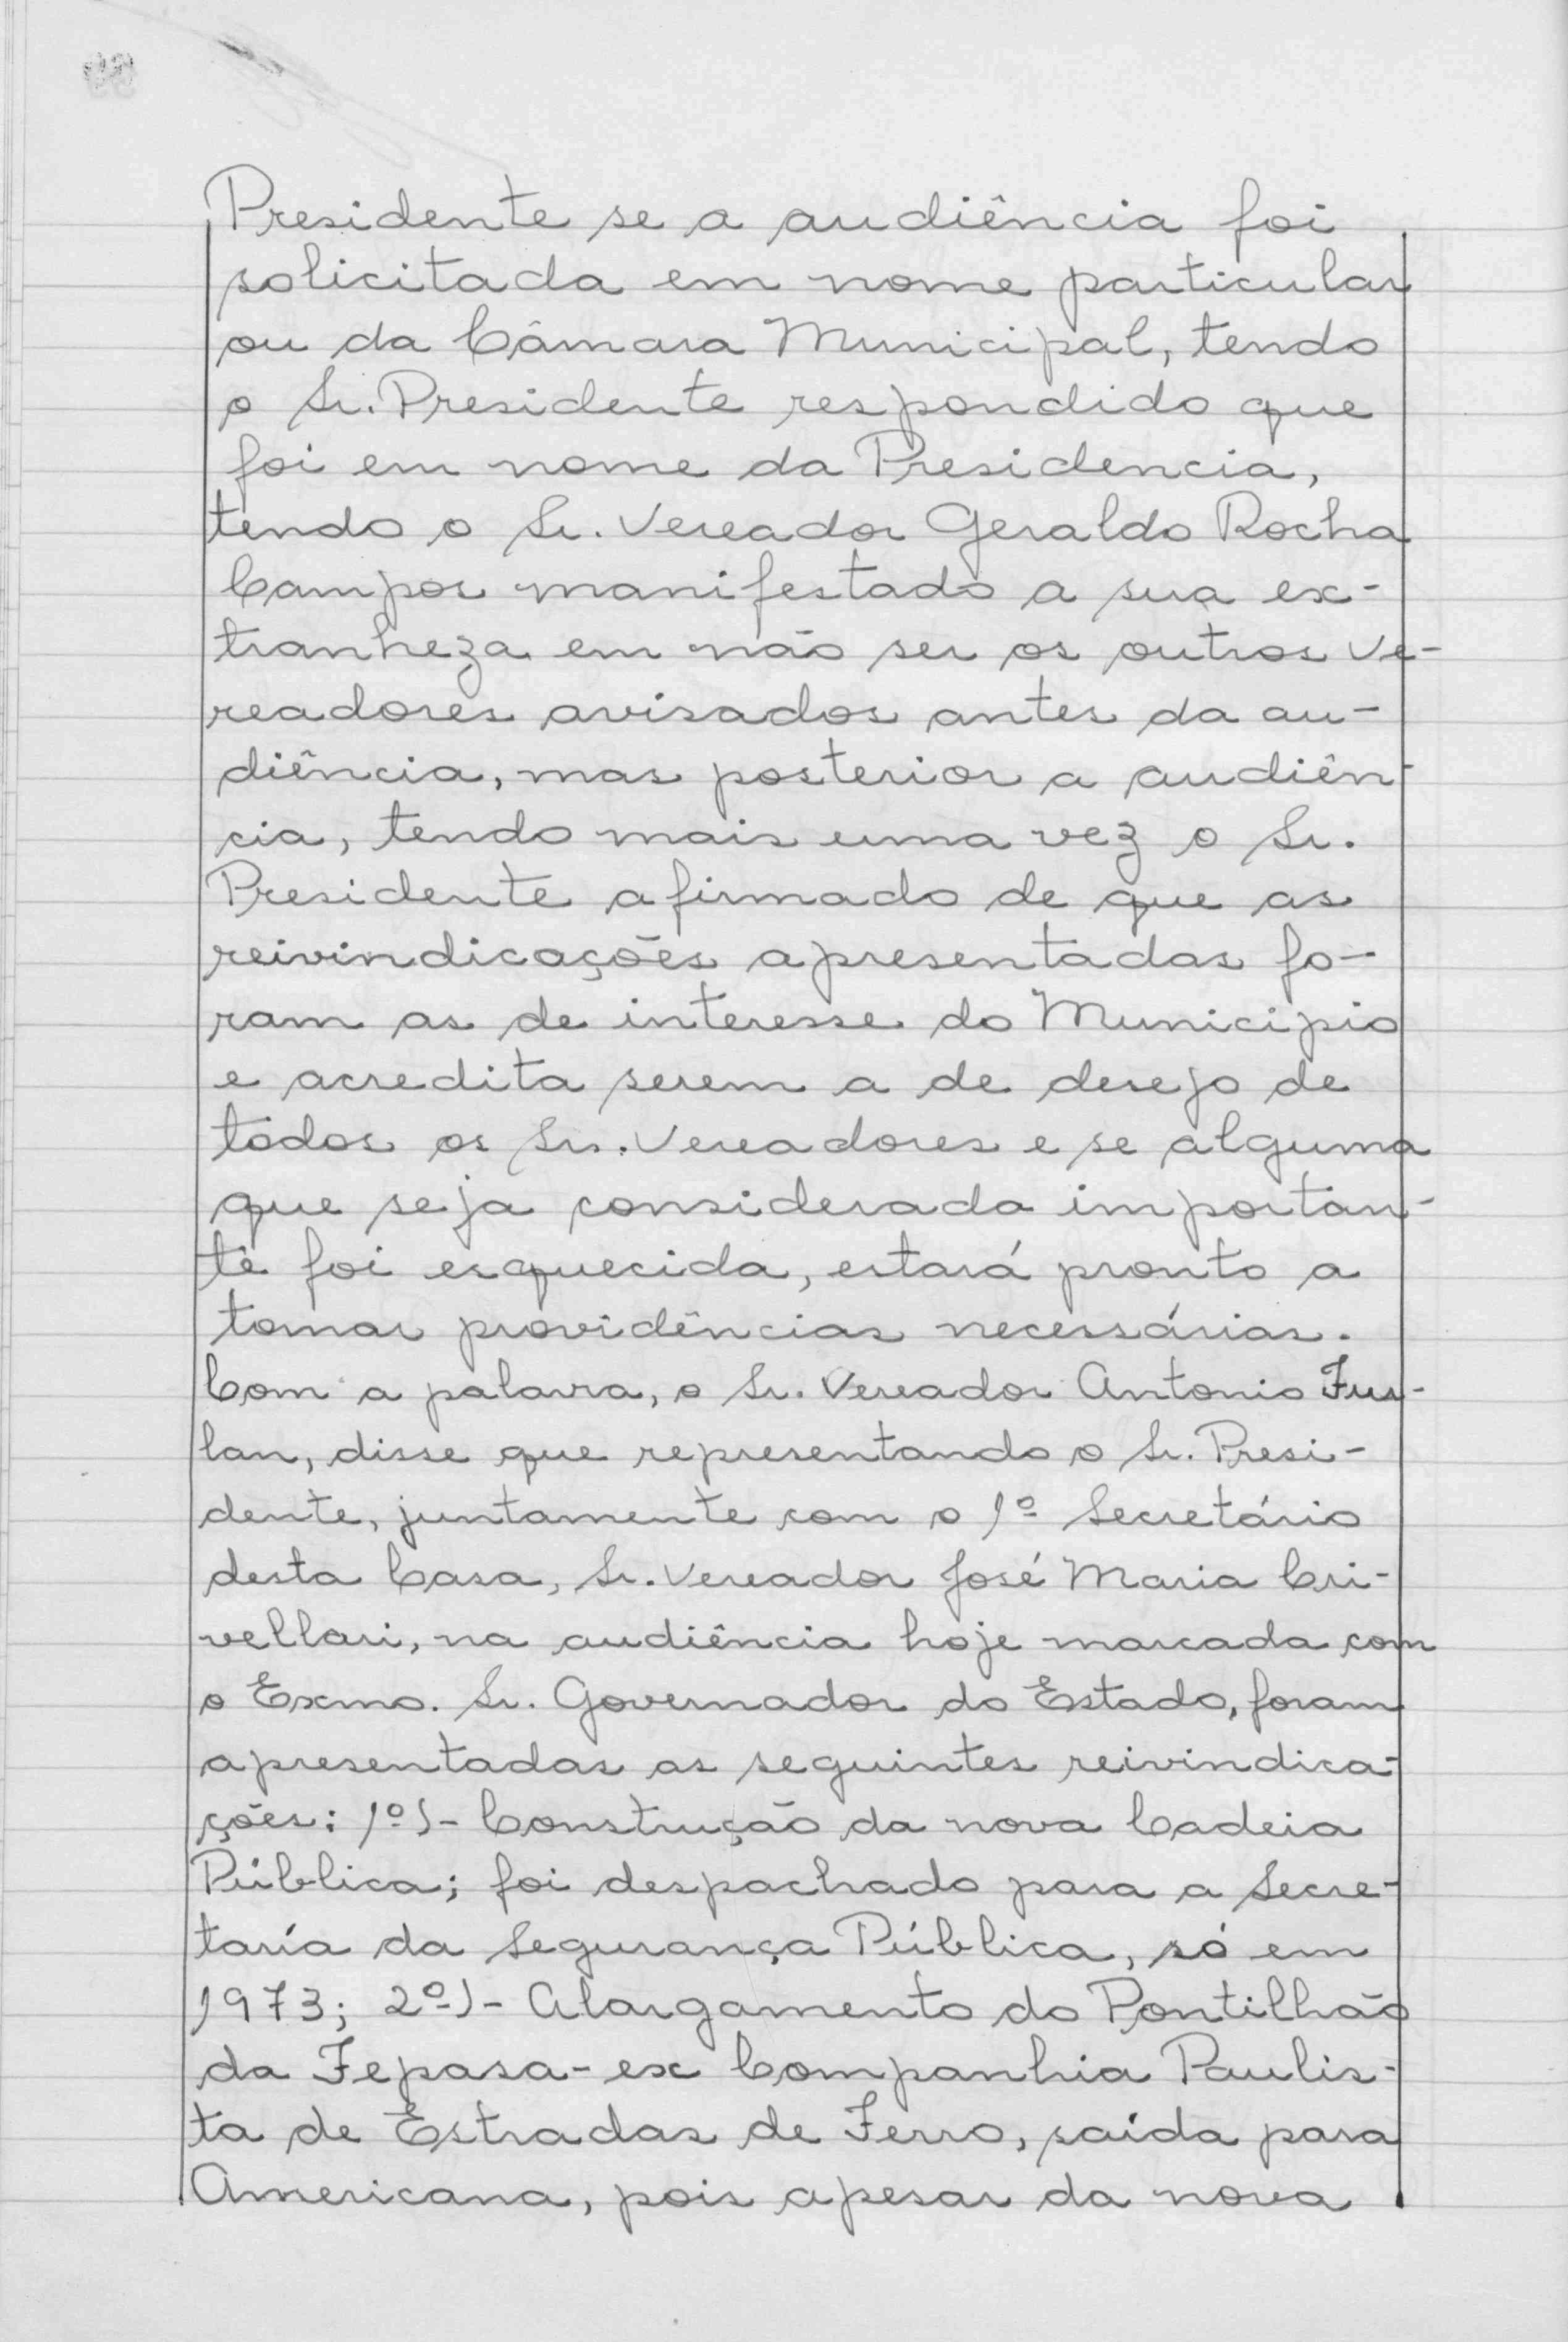 Presidente se a audiência foi
solicitada em nome particular
ou da Câmara Municipal, tendo
o Sr. Presidente respondido que
foi em nome da Presidencia,
tendo o Sr. Vereador Geraldo Rocha
Campos manifestado a sua ex-
tranheza em não ser os outros ve-
readores avisados antes da au-
diência, mas posterior a audiên-
cia, tendo mais uma vez o Sr.
Presidente afirmado de que as
reivindicações apresentadas fo-
ram as de interesse do Municipio
e acredita serem a de desejo de
todos os Srs. Vereadores e se alguma
que seja considerada importan-
te foi esquecida, estará pronto a
tomar providências necessárias.
Com a palavra, o Sr. Vereador Antonio Fur-
lan, disse que representando o Sr. Presi-
dente, juntamente com o 1º Secretário
desta Casa, Sr. Vereador José Maria Cri-
vellari, na audiência hoje marcada com
o Exmo. Sr. Governador do Estado, foram
apresentadas as seguintes reivindica-
ções: 1º)- Construção da nova Cadeia
Pública; foi despachado para a Secre-
taría da Segurança Pública, só em
1973; 2º)- Alargamento do Pontilhão
da Fepasa-ex Companhia Paulis-
ta de Estradas de Ferro, saída para
Americana, pois apesar da nova